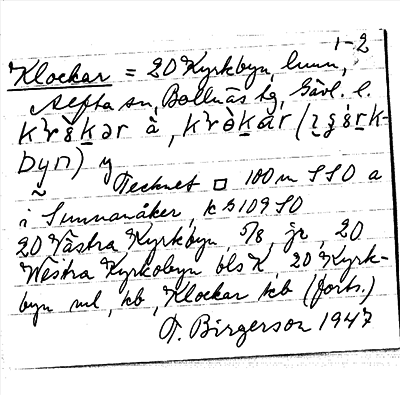 1-2
Klockar = 20 Kyrkbyn, hmn,
Alfta sn, Bollnäs tg, Gävl. l.
à
byn) y
Tecknet □ 100 m SSO a
i Sunnanåker, k S109 SO
20 Västra Kyrkbyn, 5/8, je, 20
Westra Kyrkobyn bls K, 20 Kyrk-
byn ml, kb, Klockar kb (forts.)
F. Birgerson 1947